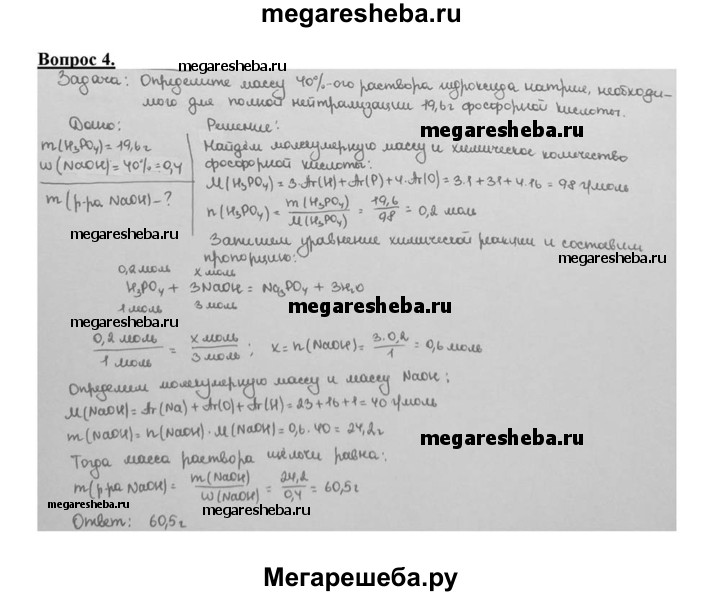 megaresheba.ru
Вопрос 4.
megaresheba.ru
Задача: Определите массу 40%-ого раствора гидроксида натрия, необходи-
мого для полной нейтрализации 19,6г фосфорной кислоты.
Дано:
m(H₃PO₄)=19,6г
w(NaOH)=40%=0,4
m(р-ра NaOH)-?
megaresheba.ru
Решение:
megaresheba.ru
Найдём молекулярную массу и химическое количество
фосфорной кислоты:
M(H₃PO₄)=3·Ar(H)+Ar(P)+4·Ar(O)=3·1+31+4·16=98 г/моль
n(H₃PO₄)= m(H₃PO₄)/M(H₃PO₄) = 19,6/98 = 0,2 моль
Запишем уравнение химической реакции и составим
пропорцию:
megaresheba.ru
0,2 моль x моль
H₃PO₄ + 3NaOH = Na₃PO₄ + 3H₂O
1 моль 3 моль
megaresheba.ru
megaresheba.ru
0,2 моль/1 моль = x моль/3 моль; x=n(NaOH)= 3·0,2/1 = 0,6 моль
Определим молекулярную массу и массу NaOH:
M(NaOH)=Ar(Na)+Ar(O)+Ar(H)=23+16+1=40 г/моль
m(NaOH)=n(NaOH)·M(NaOH)=0,6·40=24,2г
megaresheba.ru
Тогда масса раствора щёлочи равна:
m(р-ра NaOH)= m(NaOH)/w(NaOH) = 24,2/0,4 = 60,5г
megaresheba.ru
megaresheba.ru
Ответ: 60,5г
Мегарешеба.ру